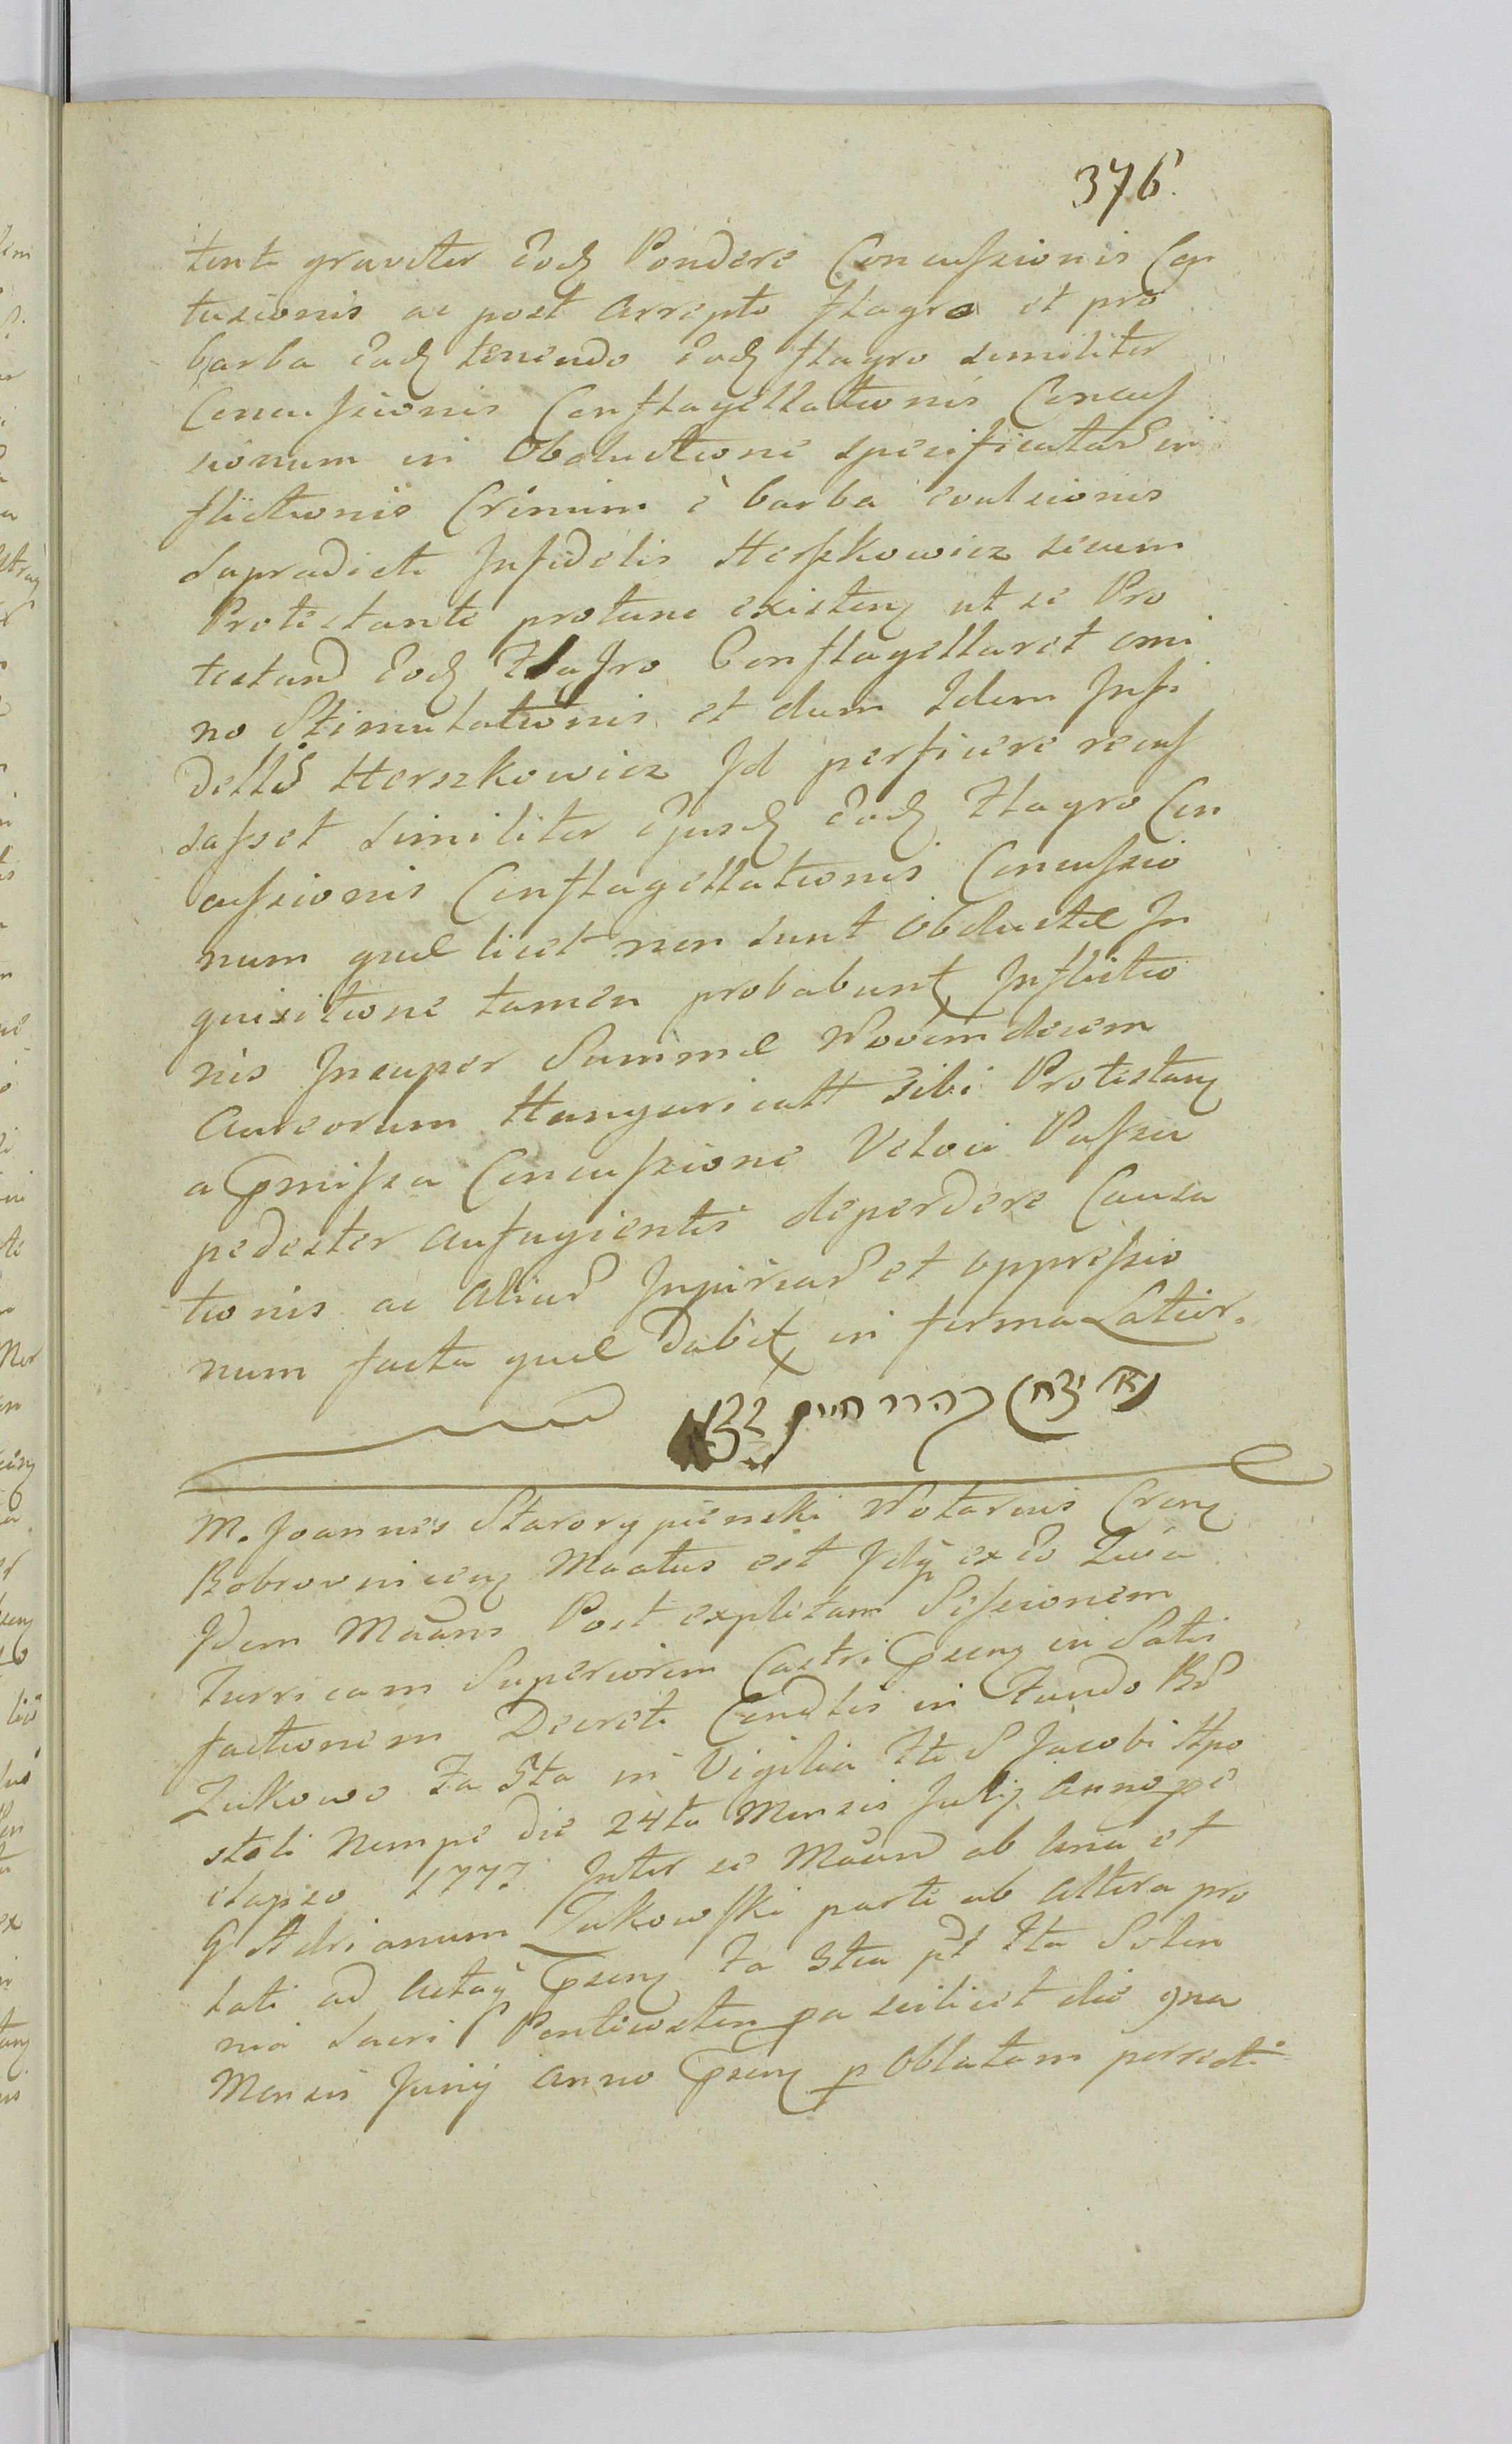 376.
tente graviter Eodq Pondere Concussionis Con
tusionis ac post Arrepto flagro et pro
barba Eadq tenendo Eodq flagro similiter
Concussionis Conflagellationis Concus
sionum in Obductione specificatar in
flictionis Crinium è barba evulsionis
Supradicti Infidelis Herszkowicz secum
Protestante protunc existen ut se Pro
testand Eodq Flagro Conflagellaret omi
no Stimulationis et dum Idem Infi
delis Herszkowicz Id perficere recus
sasset similiter Ejusdq Eodq Flagro Con
cussionis Conflagellationis Concussio
num quae licet non sunt Obductae In
quisitione tamen probabunt Inflictio
nis Insuper Summae Novemdecem
Aureorum Hungaricall Sibi Protestan
a pmissa Concussione Veloci Passu
pedester aufugientis deperdere Causa
tionis ac Aliar Injuriar et oppressio
num facta quae dabit in forma Latior.
יצחק כהרר חיים
M. Joannes Starorypienski Notarius Cren
Bobrovnicen Maatus est Idq ex Eo Quia
Idem Maans Post explitam Sessionem
Turricam Superiorem Castri psen in Satis
factionem Decreti Condlis in Fundo Bo
Zukowo Fa 5ta in Vigilia Fti S Jacobi Apo
stoli Nempe Die 24ta Mensis Julij Anno pe
elapso 1777 Inter se Maand ab una et
G Adrianum Zukowski parte ab altera pro
lati ad Acta psen Fa 5ta pt Fta Solen
nia Sacri Pentecosten pa scilicet die 9na
Mensis Junij Anno psen p Oblatam porrecti